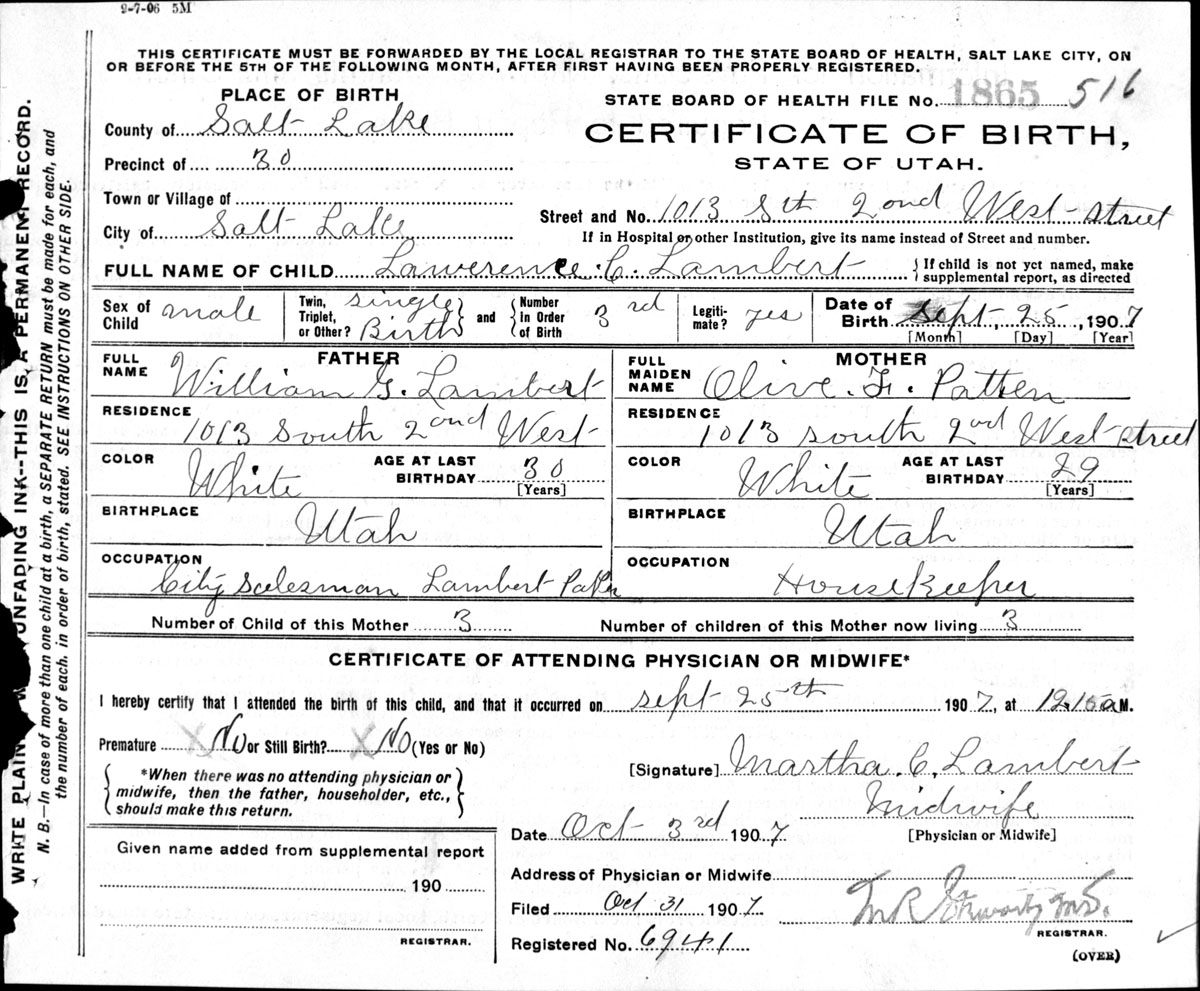 9-7-06 5M
THIS CERTIFICATE MUST BE FORWARDED BY THE LOCAL REGISTRAR TO THE STATE BOARD OF HEALTH, SALT LAKE CITY, ON
OR BEFORE THE 5TH OF THE FOLLOWING MONTH, AFTER FIRST HAVING BEEN PROPERLY REGISTERED.
PLACE OF BIRTH
County of Salt Lake
Precinct of 30
Town or Village of
City of Salt Lake
STATE BOARD OF HEALTH FILE No. 1865 516
CERTIFICATE OF BIRTH,
STATE OF UTAH.
Street and No. 1013 Sth 2ond West Street
If in Hospital or other Institution, give its name instead of Street and number.
FULL NAME OF CHILD Lawerence C. Lambert {If child is not yet named, make
supplemental report, as directed
Sex of Child male
Twin, Triplet, or Other? single Birth
and
Number in Order of Birth 3rd
Legiti-mate? yes
Date of Birth Sept 25, 1907
[Month] [Day] [Year]
FATHER
FULL NAME William G. Lambert
RESIDENCE
1013 South 2ond West
COLOR White AGE AT LAST BIRTHDAY 30
[Years]
BIRTHPLACE Utah
OCCUPATION
City Salesman Lambert Paper
MOTHER
FULL MAIDEN NAME Olive. F. Patten
RESIDENCE
1013 South 2ond West Street
COLOR White AGE AT LAST BIRTHDAY 29
[Years]
BIRTHPLACE Utah
OCCUPATION
Housekeeper
Number of Child of this Mother 3 Number of children of this Mother now living 3
CERTIFICATE OF ATTENDING PHYSICIAN OR MIDWIFE*
I hereby certify that I attended the birth of this child, and that it occurred on Sept 25th 1907, at 12.15 a M.
Premature X No or Still Birth? X No (Yes or No)
{*When there was no attending physician or
midwife, then the father, householder, etc.,
should make this return.}
[Signature] Martha. C. Lambert
Midwife
[Physician or Midwife]
Date Oct 3rd 1907
Given name added from supplemental report
190
REGISTRAR.
Address of Physician or Midwife
Filed Oct 31 1907
REGISTRAR.
Registered No. 6941
(OVER)
WRITE PLAIN UNFADING INK--THIS IS A PERMANENT RECORD.
N. B.—In case of more than one child at a birth, a SEPARATE RETURN must be made for each, and
the number of each, in order of birth, stated. SEE INSTRUCTIONS ON OTHER SIDE.